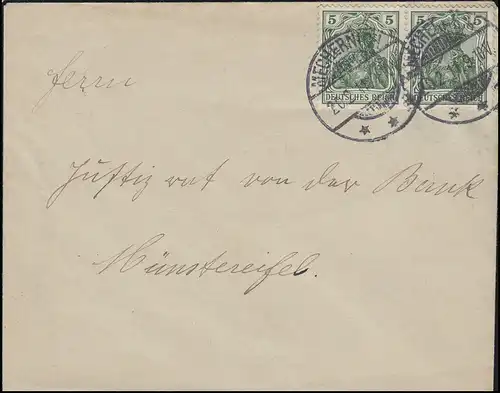 5 5 5 5
DEUTSCHES REICH DEUTSCHES REICH
MECHERNICH MECHERNICH
Herrn
Justizrat von der Bank
Münstereifel.